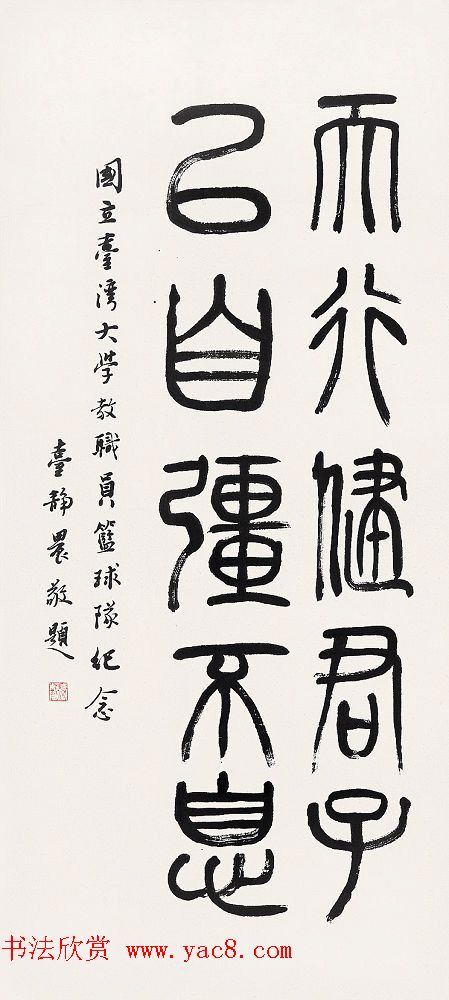 天行健君子
㠯自彊不息
國立臺灣大学教職員籃球隊纪念
臺静農敬題
书法欣赏 www.yac8.com